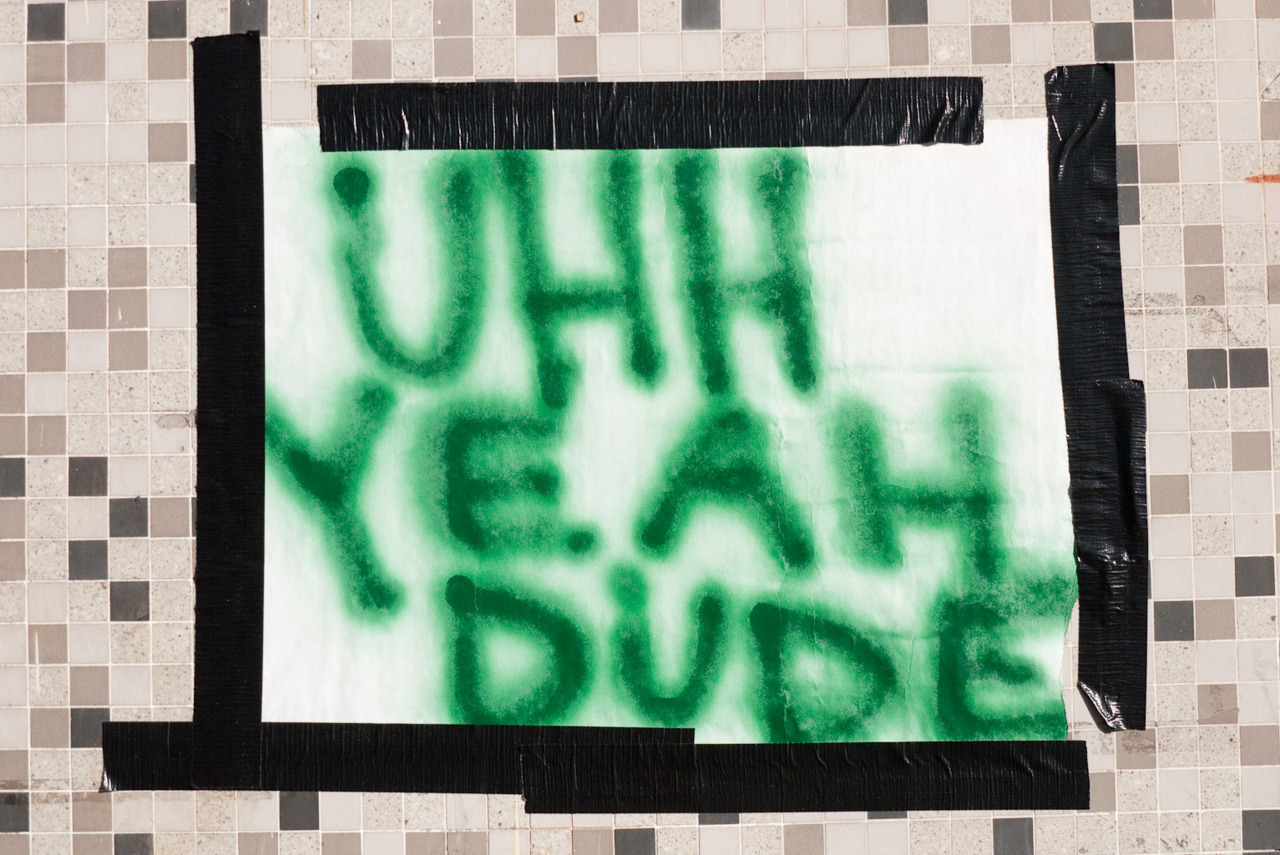 UHH
YEAH
DUDE